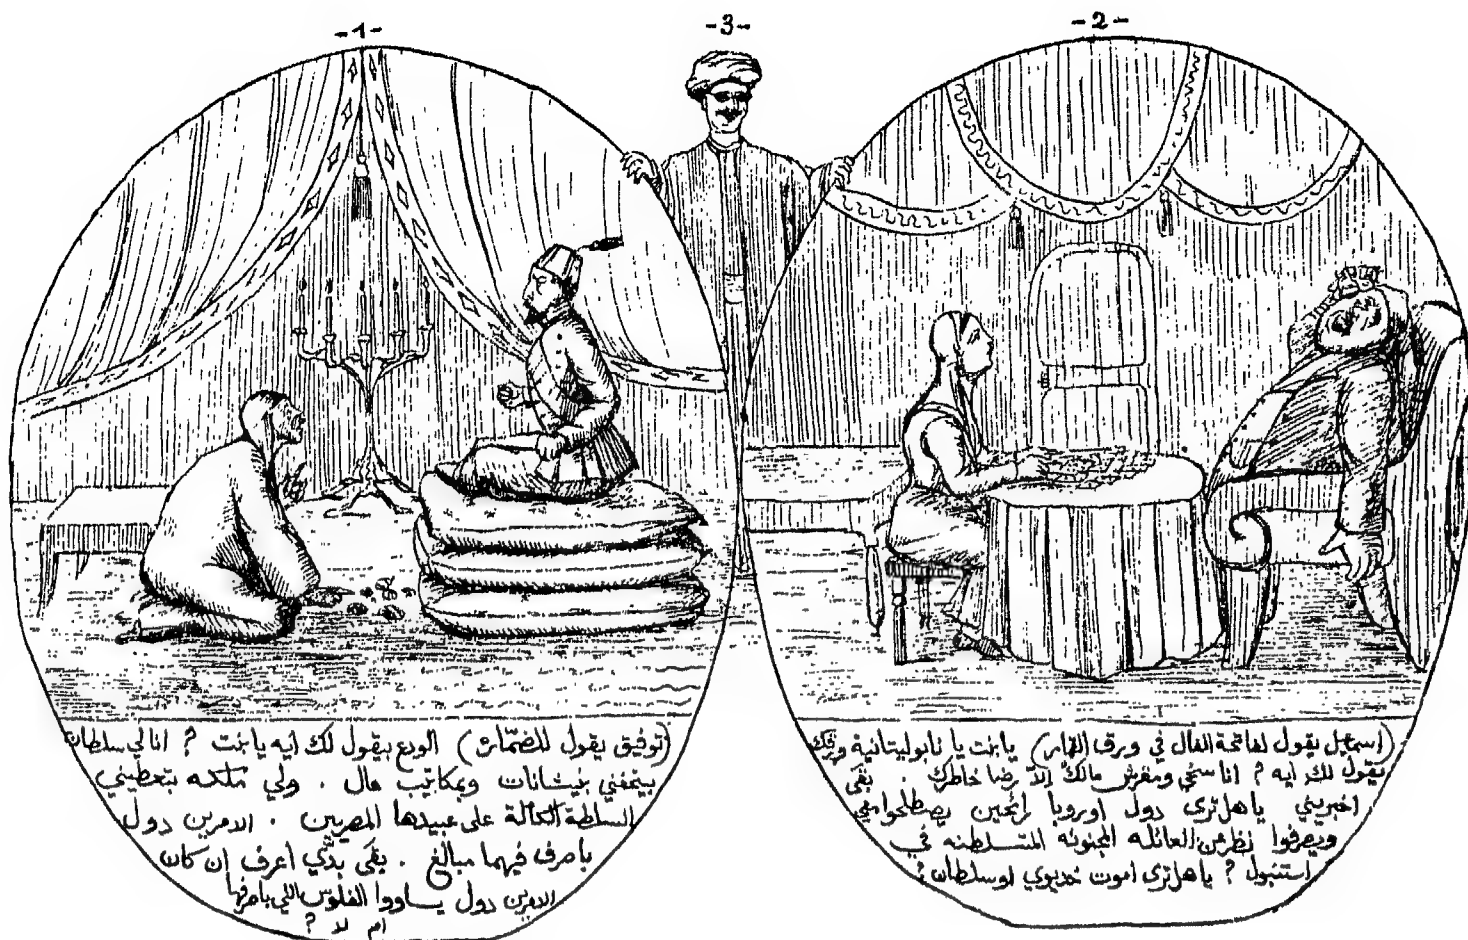 -1-
-3-
-2-
(توفيق يقول للضمّاره) الودع بيقول لك ايه يا بنت ? انا لي سلطان
بيتحفني بنيشانات وبمكاتيب مال . ولي ملكه بتعطيني
السلطة الكاملة على عبيدها المصريين . الامرين دول
باصرف فيهما مبالغ . بقى بدّي اعرف ان كان
الامرين دول يساووا الفلوس اللي باصرفها
ام لا ?
(اسماعيل يقول لفاتحة الفال في ورق القمار) يا بنت يا نابوليتانية ورقك
يقول لك ايه ? انا سخي ومفرش مالك الاّ رضا خاطرك . بقى
اخبريني ياهل ترى دول اوروبا رائحين يصطلحوا معي
ويصرفوا نظر عن العائله المجنونه المتسلطنه في
استنبول ? ياهل ترى اموت خديوي او سلطان ?